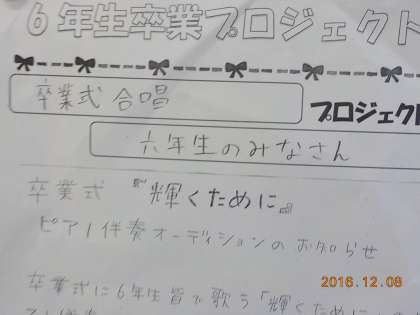 6年生卒業プロジェクト
卒業式 合唱
プロジェクト
六年生のみなさん
卒業式 『輝くために』
ピアノ伴奏オーディションのお知らせ
卒業式に6年生皆で歌う「輝くために」の
2016.12.08